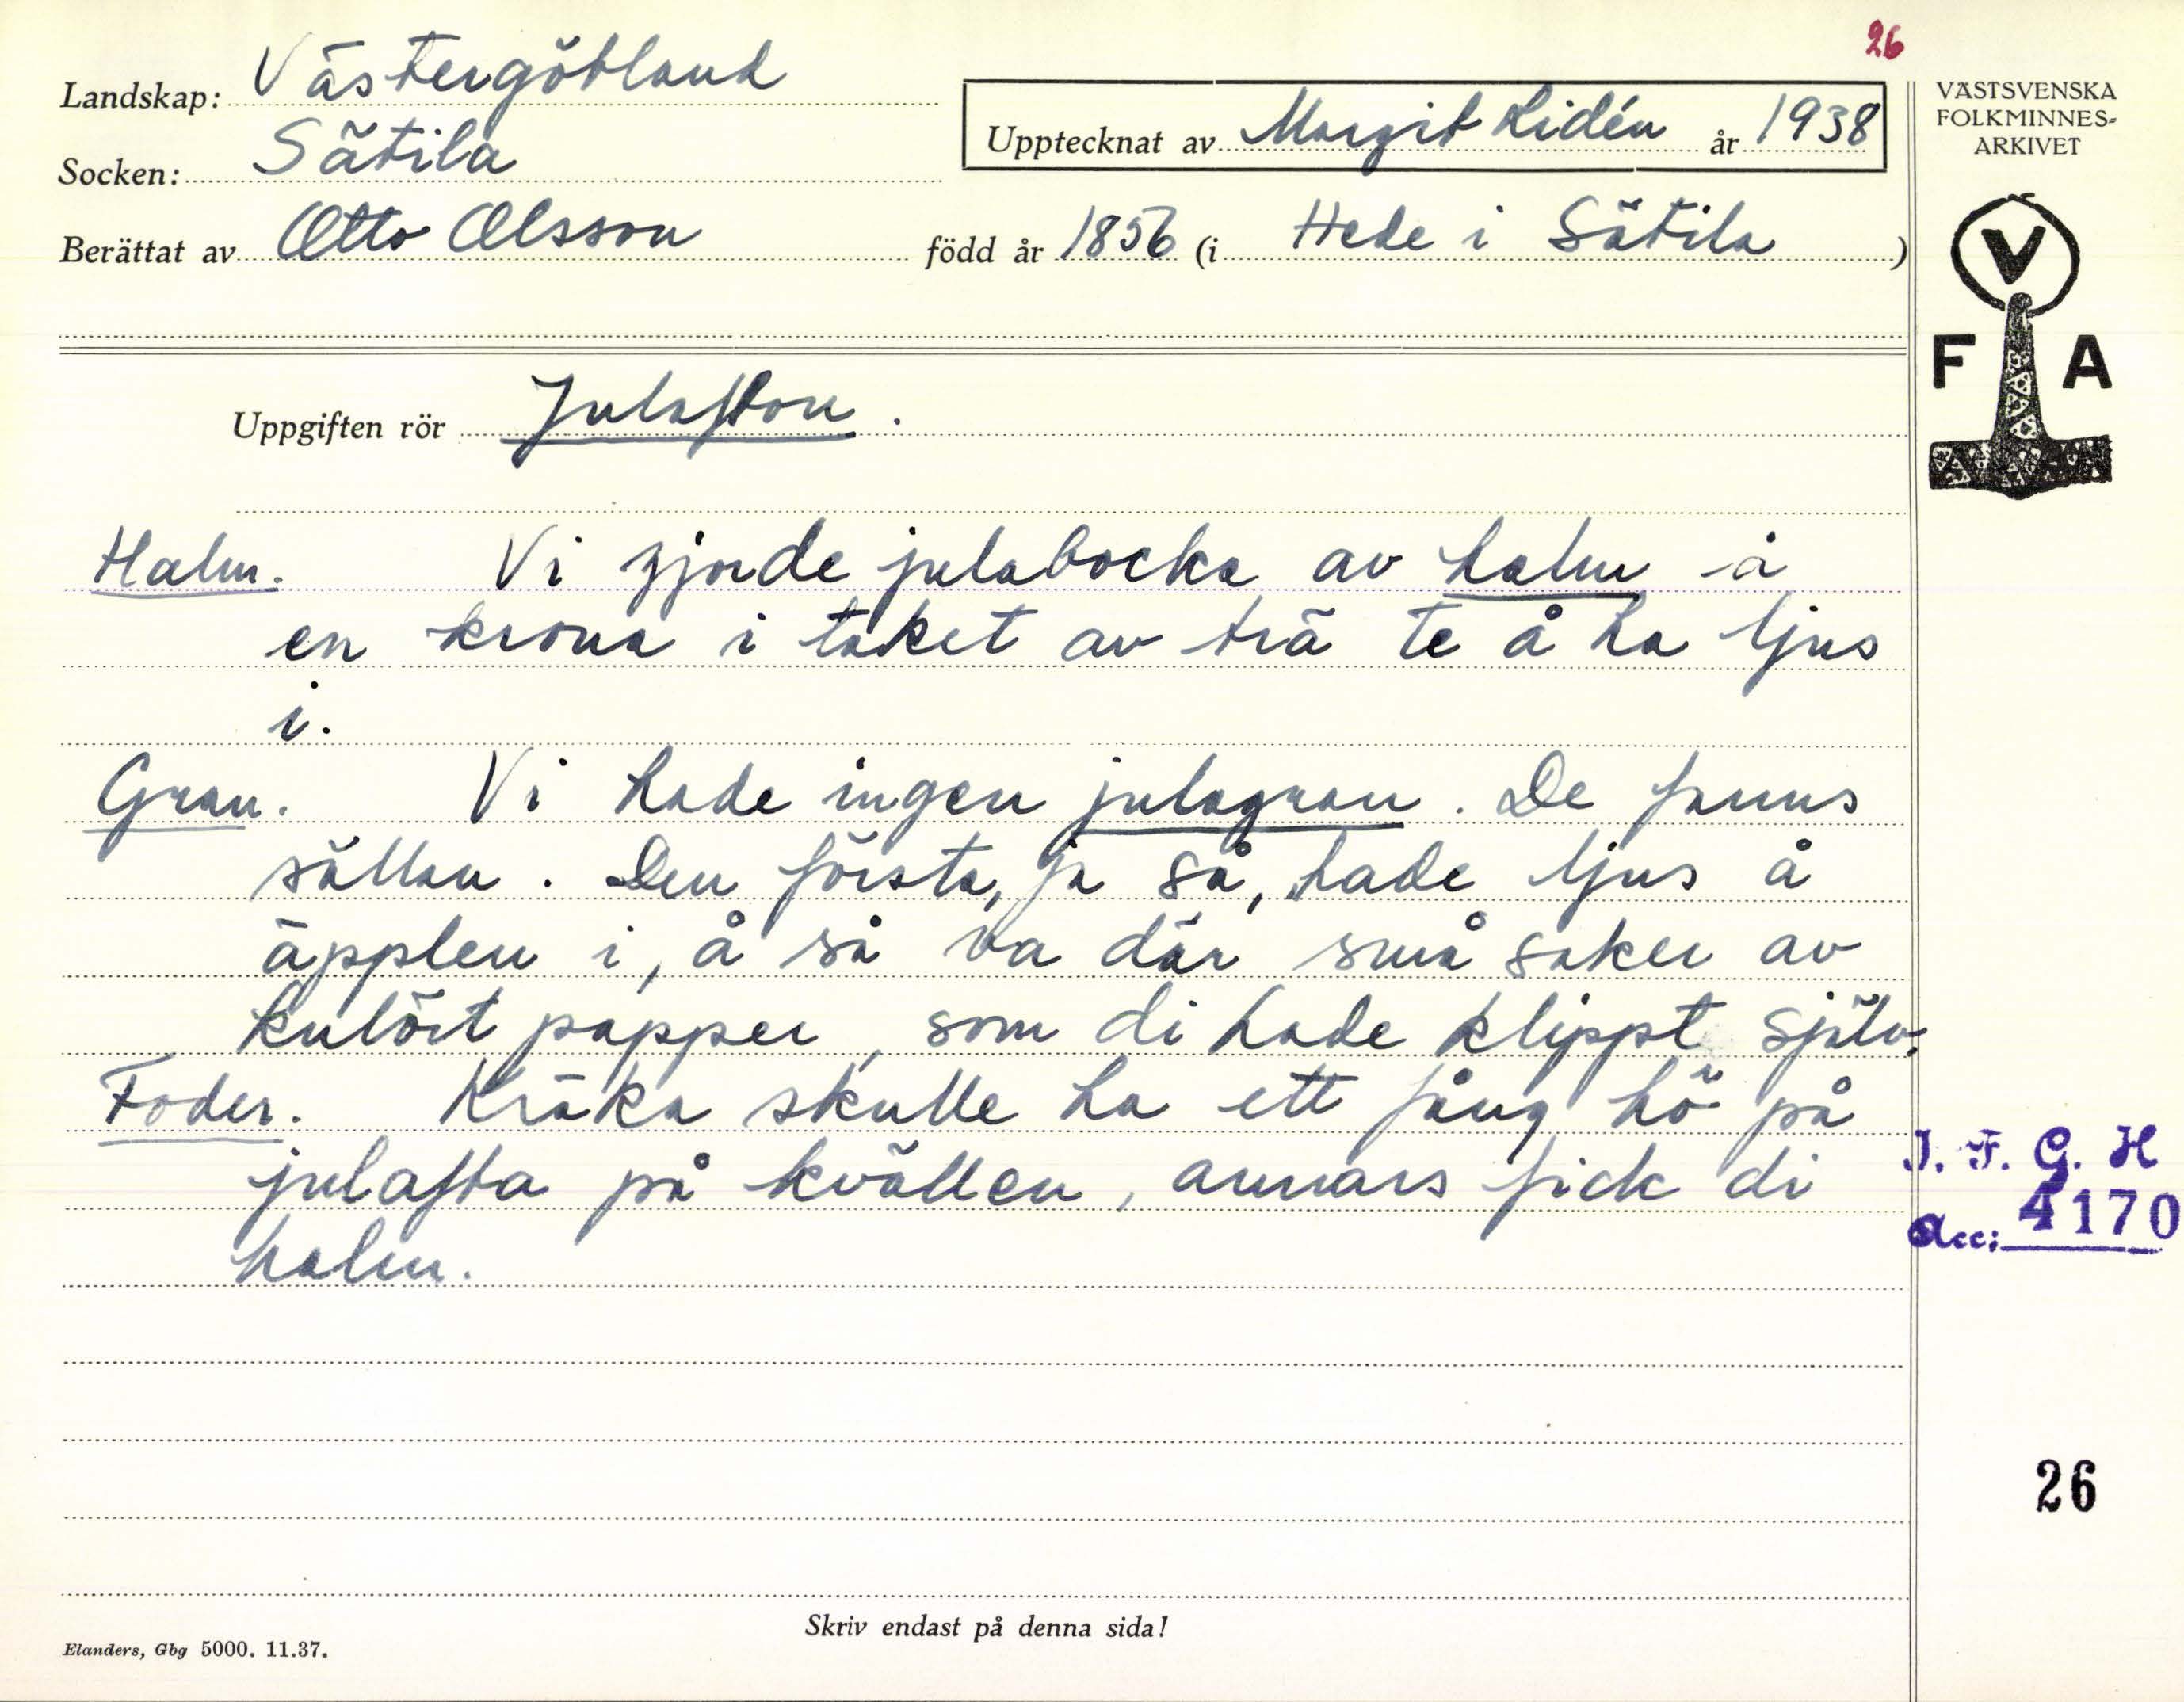 26
Landskap: Västergötland
Socken: Sätila
Upptecknat av Margit Lidén år 1938
Berättat av Otto Olsson född år 1856 (i Hede i Sätila)
VÄSTSVENSKA
FOLKMINNES-
ARKIVET
V
F A
Uppgiften rör Julafton.
Halm. Vi gjorde julabocka av halm å
en krona i taket av trä te å ha ljus
i.
Gran. Vi hade ingen julagran. De fanns
sällan. Den första, ja så, hade ljus å
äpplen i, å så va där små saker av
kulört papper, som di hade klippt själv.
Foder. Kräka skulle ha ett fång hö på
julafta på kvällen, annars fick di
halm.
I. F. G. H
Acc: 4170
26
Skriv endast på denna sida!
Elanders, Gbg 5000. 11.37.